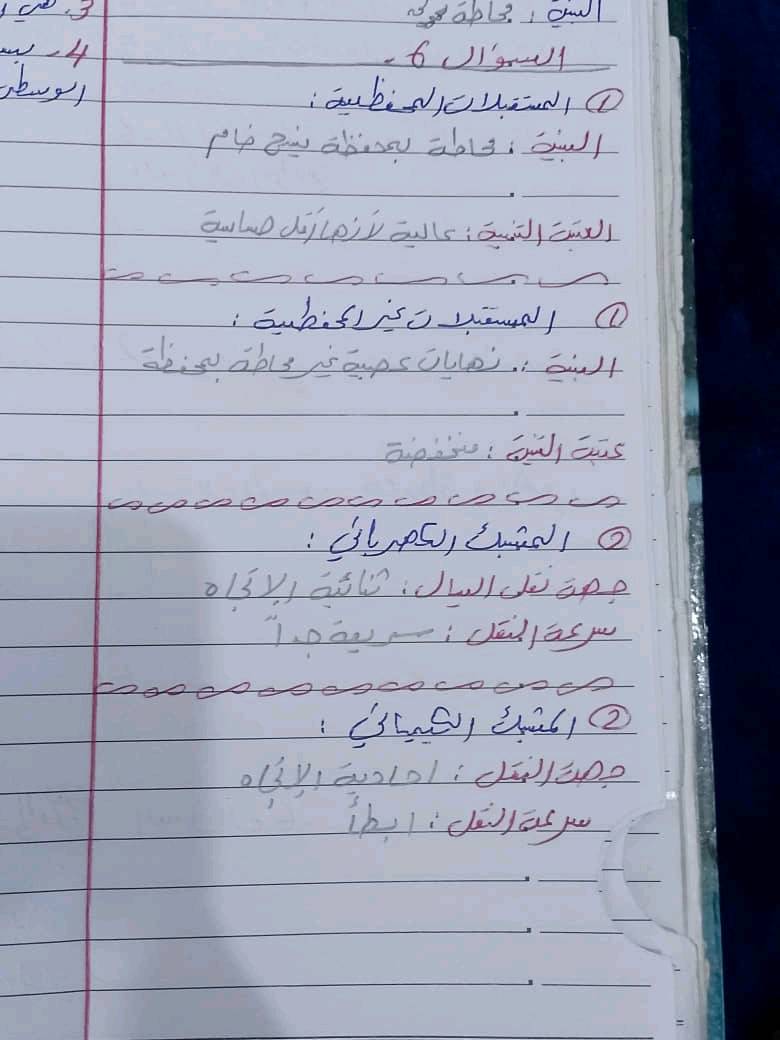 البنية : محاطة
3. هي
السؤال 6 -
4 -
الوسطى
① المستقبلات المحفظية :
البنية : محاطة بمحفظة نسيج ضام
العتبة التنبيه : عالية لأنها أقل حساسية
① المستقبلات غير المحفظية :
البنية : نهايات عصبية غير محاطة بمحفظة
عتبة التنبيه : منخفضة
② المشبك الكهربائي :
جهة نقل السيال : ثنائية الإتجاه
سرعة النقل : سريعة جداً
② المشبك الكيميائي :
جهة النقل : احادية الإتجاه
سرعة النقل : ابطأ